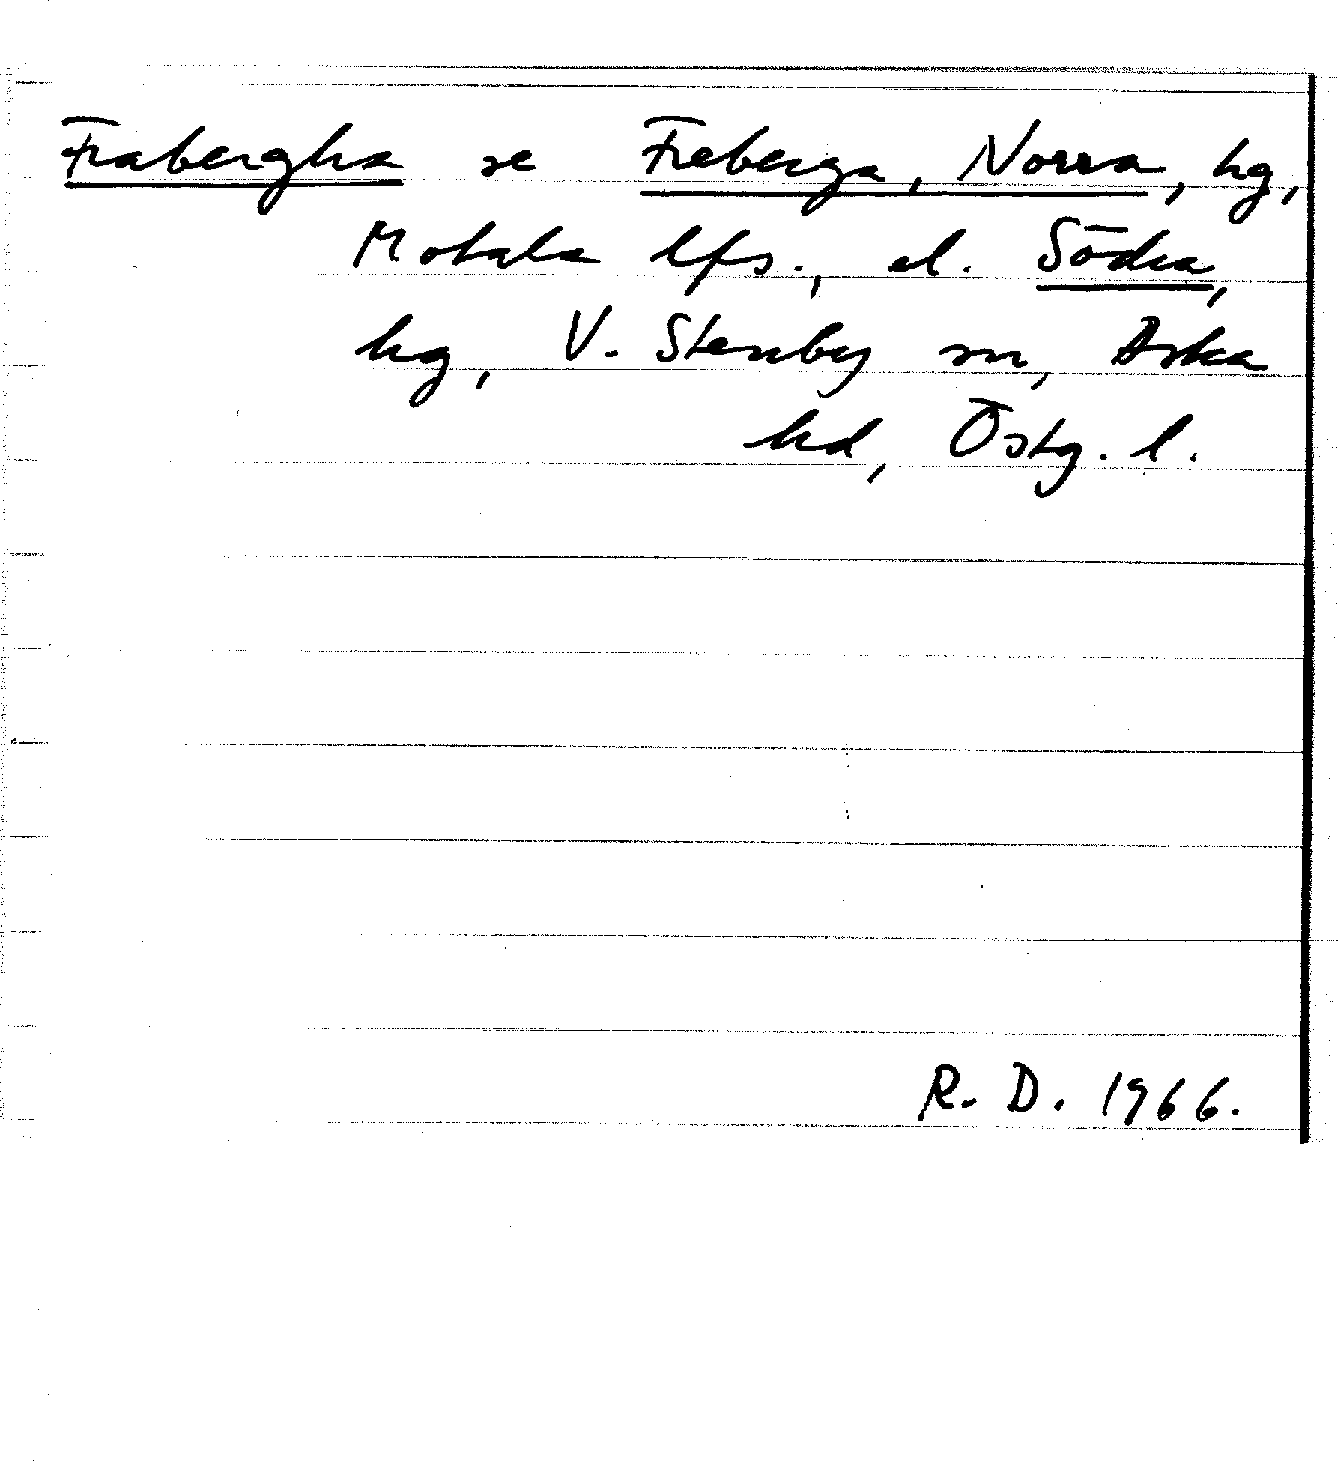 Frabergha se Freberga, Norra, hg,
Motala lfs., el. Södra,
hg, V. Stenby sn, Aska
hd, Östg. l.
R. D. 1966.